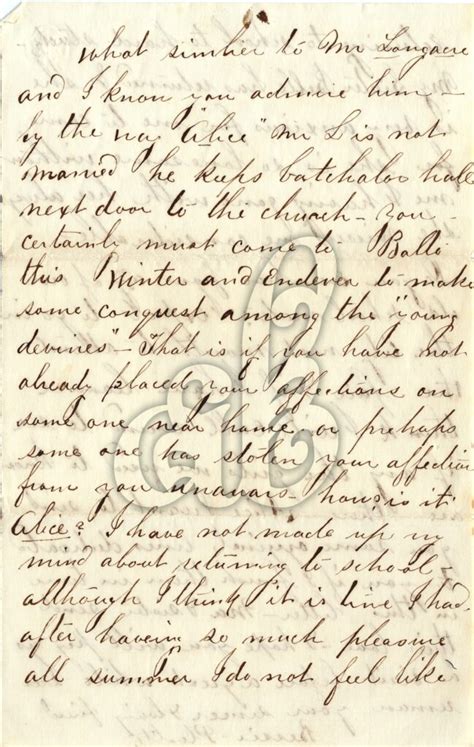 what similer to Mr Longacre
and I know you admire him –
by the way "Alice" Mr L is not
married he keeps batchalor hall
next door to the church – you –
certainly must come to Balto
this Winter and Endever to make
some conquest among the "young
devines" – That is if you have not
already placed your affections on
some one near home or prehaps
some one has stolen your affection
from you unawars – how is it
Alice? I have not made up my
mind about returning to school –
although I think it is time I had
after haveing so much pleasure
all summer I do not feel like